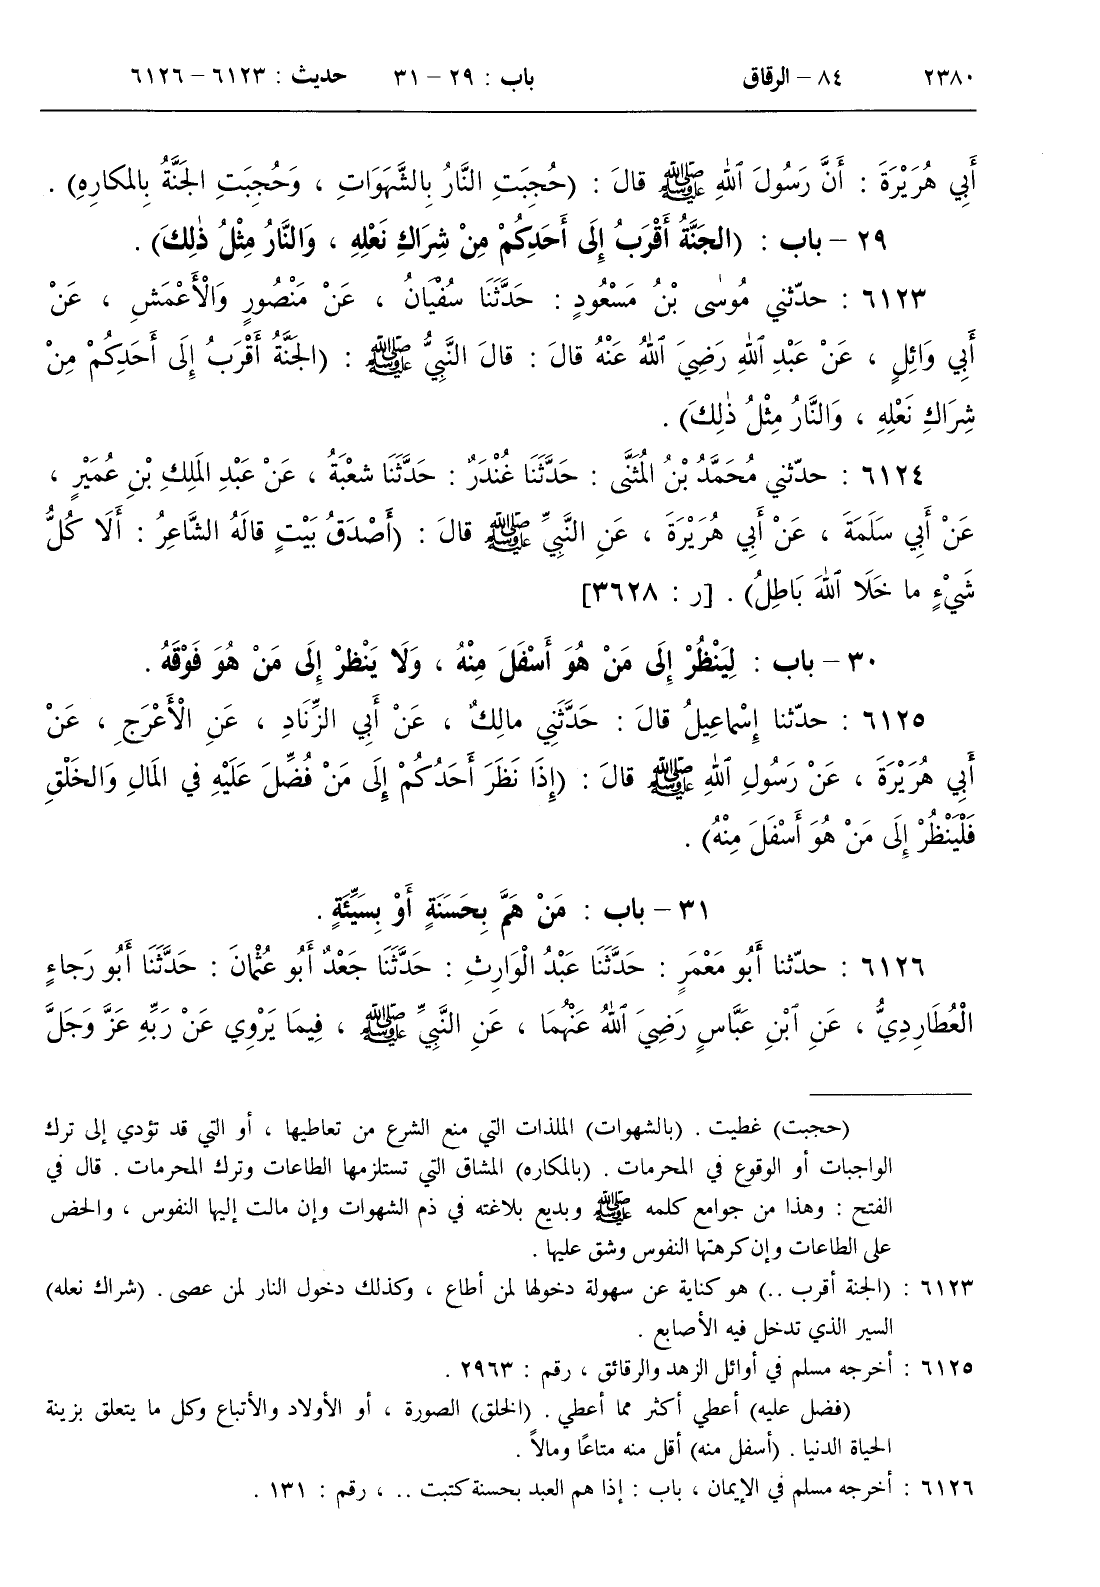 ٢٣٨٠ ٨٤ – الرقاق باب : ٢٩ – ٣١ حديث : ٦١٢٣ – ٦١٢٦
أَبِي هُرَيْرَةَ : أَنَّ رَسُولَ ٱللهِ ﷺ قالَ : (حُجِبَتِ النَّارُ بِالشَّهَوَاتِ ، وَحُجِبَتِ الجَنَّةُ بِالمَكارِهِ) .
٢٩ – باب : (الجَنَّةُ أَقْرَبُ إِلَى أَحَدِكُمْ مِنْ شِرَاكِ نَعْلِهِ ، وَالنَّارُ مِثْلُ ذٰلِكَ) .
٦١٢٣ : حدّثني مُوسٰى بْنُ مَسْعُودٍ : حَدَّثَنَا سُفْيَانُ ، عَنْ مَنْصُورٍ وَالْأَعْمَشِ ، عَنْ
أَبِي وَائِلٍ ، عَنْ عَبْدِ ٱللهِ رَضِيَ ٱللهُ عَنْهُ قالَ : قالَ النَّبِيُّ ﷺ : (الجَنَّةُ أَقْرَبُ إِلَى أَحَدِكُمْ مِنْ
شِرَاكِ نَعْلِهِ ، وَالنَّارُ مِثْلُ ذٰلِكَ) .
٦١٢٤ : حدّثني مُحَمَّدُ بْنُ المُثَنَّى : حَدَّثَنَا غُنْدَرٌ : حَدَّثَنَا شعْبَةُ ، عَنْ عَبْدِ المَلِكِ بْنِ عُمَيْرٍ ،
عَنْ أَبِي سَلَمَةَ ، عَنْ أَبِي هُرَيْرَةَ ، عَنِ النَّبِيِّ ﷺ قالَ : (أَصْدَقُ بَيْتٍ قالَهُ الشَّاعِرُ : أَلَا كُلُّ
شَيْءٍ ما خَلَا ٱللهَ بَاطِلُ) . [ر : ٣٦٢٨]
٣٠ – باب : لِيَنْظُرْ إِلَى مَنْ هُوَ أَسْفَلَ مِنْهُ ، وَلَا يَنْظرْ إِلَى مَنْ هُوَ فَوْقَهُ .
٦١٢٥ : حدّثنا إِسْماعِيلُ قالَ : حَدَّثَنِي مالِكٌ ، عَنْ أَبِي الزِّنَادِ ، عَنِ الْأَعْرَجِ ، عَنْ
أَبِي هُرَيْرَةَ ، عَنْ رَسُولِ ٱللهِ ﷺ قالَ : (إِذَا نَظَرَ أَحَدُكُمْ إِلَى مَنْ فُضِّلَ عَلَيْهِ فِي المَالِ وَالخَلْقِ
فَلْيَنْظُرْ إِلَى مَنْ هُوَ أَسْفَلَ مِنْهُ) .
٣١ – باب : مَنْ هَمَّ بِحَسَنَةٍ أَوْ بِسَيِّئَةٍ .
٦١٢٦ : حدّثنا أَبُو مَعْمَرٍ : حَدَّثَنَا عَبْدُ الْوَارِثِ : حَدَّثَنَا جَعْدٌ أَبُو عُثْمانَ : حَدَّثَنَا أَبُو رَجاءٍ
الْعُطَارِدِيُّ ، عَنِ ٱبْنِ عَبَّاسٍ رَضِيَ ٱللهُ عَنْهُمَا ، عَنِ النَّبِيِّ ﷺ ، فِيمَا يَرْوِي عَنْ رَبِّهِ عَزَّ وَجَلَّ
(حجبت) غطيت . (بالشهوات) الملذات التي منع الشرع من تعاطيها ، أو التي قد تؤدي إلى ترك
الواجبات أو الوقوع في المحرمات . (بالمكاره) المشاق التي تستلزمها الطاعات وترك المحرمات . قال في
الفتح : وهذا من جوامع كلمه ﷺ وبديع بلاغته في ذم الشهوات وإن مالت إليها النفوس ، والحض
على الطاعات وإن كرهتها النفوس وشق عليها .
٦١٢٣ : (الجنة أقرب ..) هو كناية عن سهولة دخولها لمن أطاع ، وكذلك دخول النار لمن عصى . (شراك نعله)
السير الذي تدخل فيه الأصابع .
٦١٢٥ : أخرجه مسلم في أوائل الزهد والرقائق ، رقم : ٢٩٦٣ .
(فضل عليه) أعطي أكثر مما أعطي . (الخلق) الصورة ، أو الأولاد والأتباع وكل ما يتعلق بزينة
الحياة الدنيا . (أسفل منه) أقل منه متاعًا ومالاً .
٦١٢٦ : أخرجه مسلم في الإيمان ، باب : إذا هم العبد بحسنة كتبت .. ، رقم : ١٣١ .